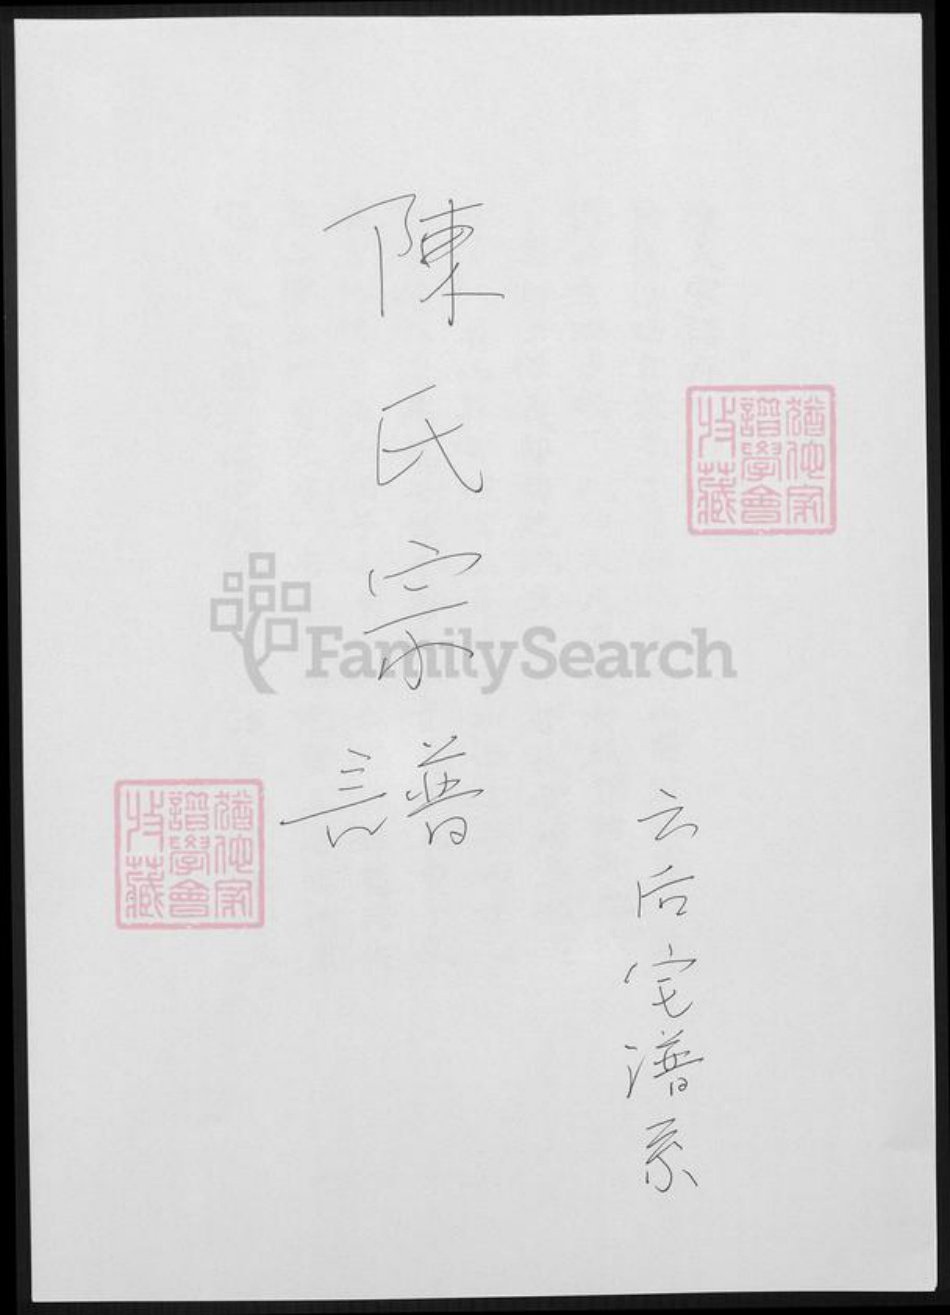 陳氏宗譜
云后宅谱系
猶他家
譜學會
收藏
猶他家
譜學會
收藏
FamilySearch